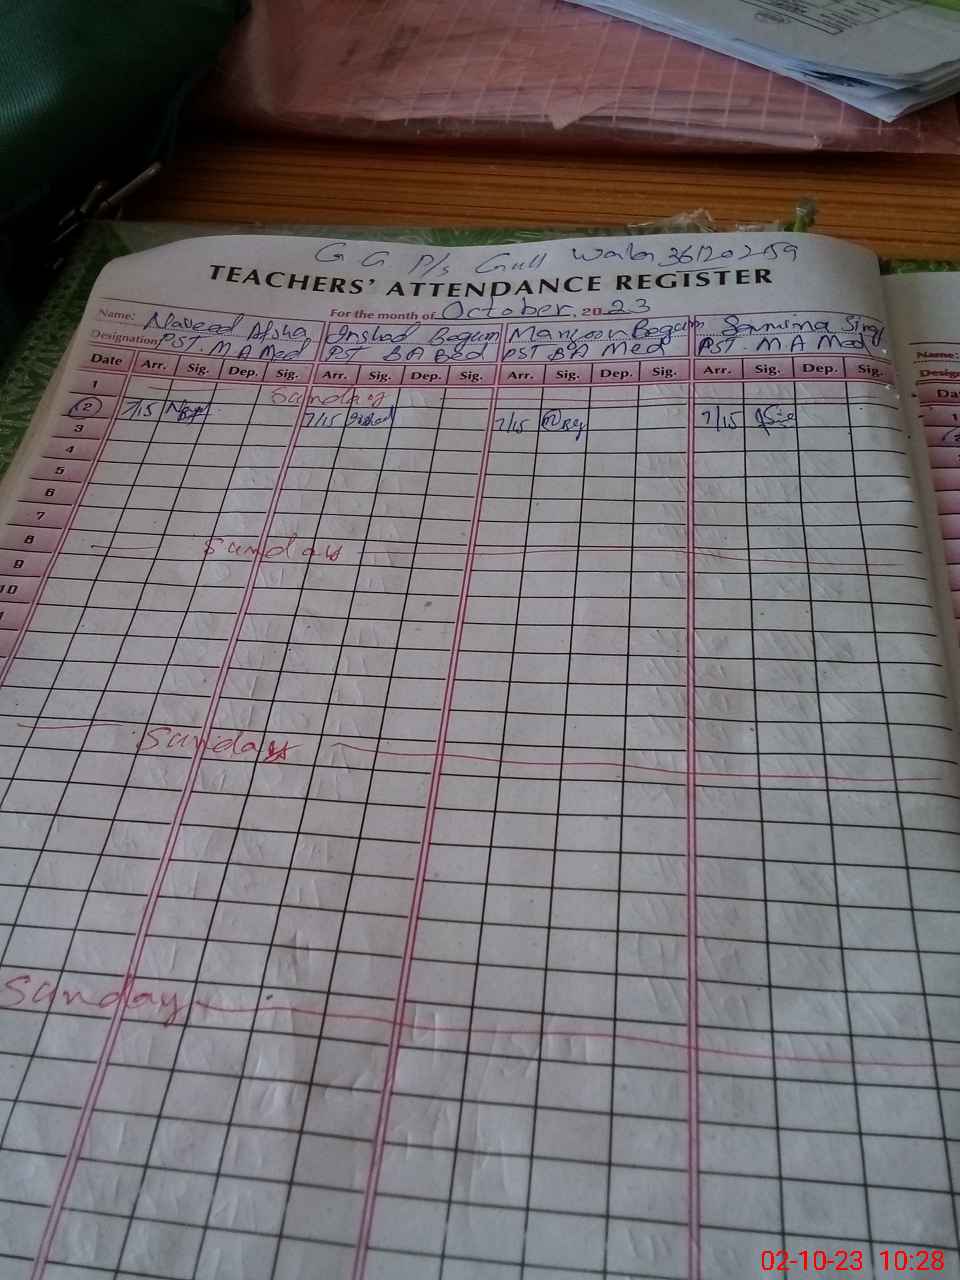 G G P/S Gull Wala 36120259
TEACHERS' ATTENDANCE REGISTER
For the month of October, 2023
Name: Naveed Afsha Irshad Begum Manzoor Begum
Designation PST. M A Med PST B A Bed PST BA Med PST. M A Med
Date Arr. Sig. Dep. Sig. Arr. Sig. Dep. Sig. Arr. Sig. Dep. Sig. Arr. Sig. Dep. Sig.
1 Sunday
2 7/15 7/15 7/15 7/15
3
4
5
6
7
8 Sunday
9
10
Sunday
Sunday
Name:
02-10-23 10:28